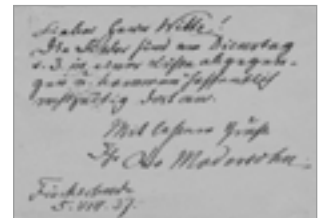 Lieber Herr Witte!
Die Bilder sind am Dienstag
d. 3. in einer Kiste abgegan-
gen u. kommen hoffentlich
rechtzeitig dort an.
Mit besten Grüßen
Ihr Otto Modersohn.
Fischerhude
5. VIII. 37.